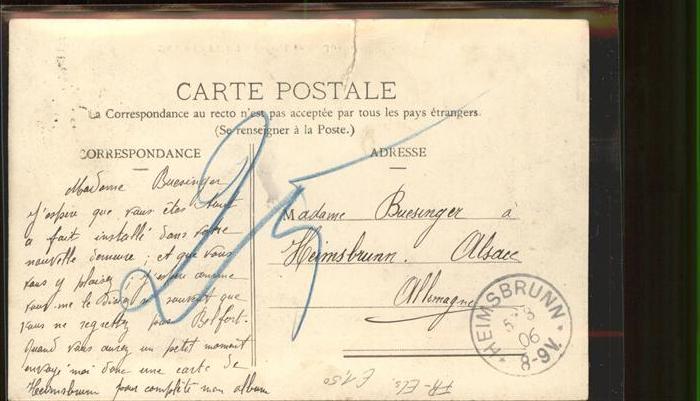 CARTE POSTALE
La Correspondance au recto n'est pas acceptée par tous les pays étrangers
(Se renseigner à la Poste.)
CORRESPONDANCE
Madame Buesinger
J'espère que vous êtes tout
a fait installé dans votre
nouvelle demeure ; et que vous
vous y plaisez ;
vous me le souvent que
vous ne regrettez pas Belfort.
Quand vous aurez un petit moment
envoyé moi donc une carte de
Heimsbrunn pour complèté mon album
ADRESSE
Madame Buesinger à
Heimsbrunn. Alsace
Allemagne
25
HEIMSBRUNN
06
8-9V.
FR-Els. £1,50